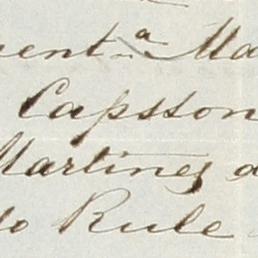 ment.ª Ma
Capston
Martinez d
do Rule